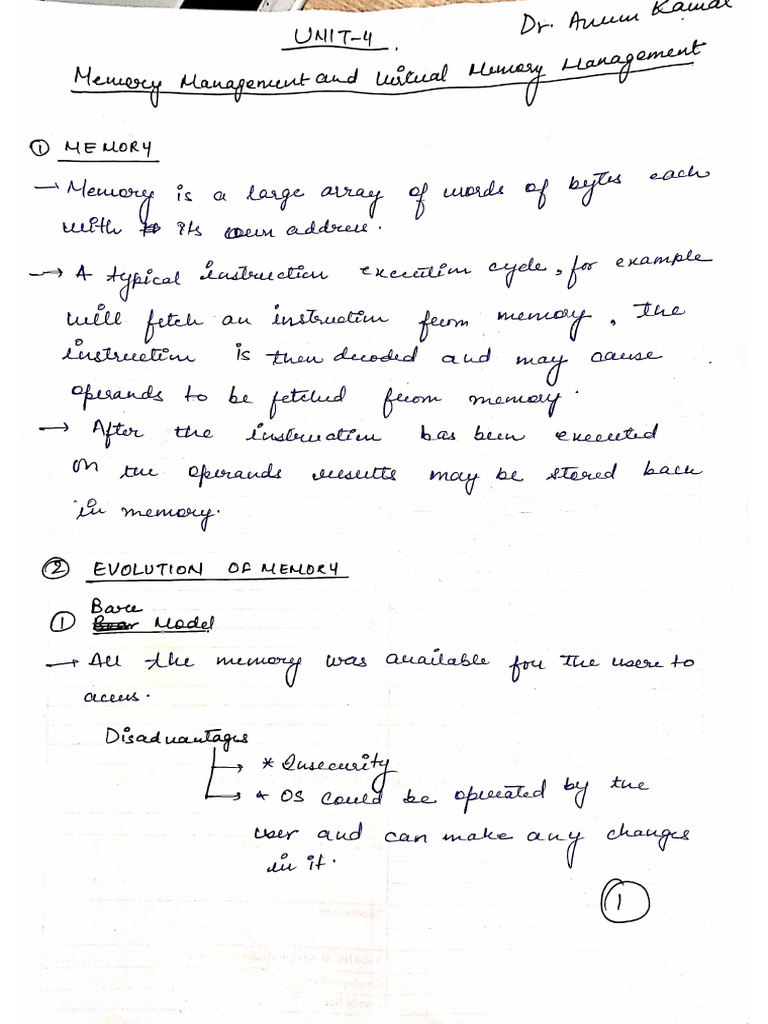 UNIT-4.
Dr. Anum Kamal
Memory Management and Virtual Memory Management
① MEMORY
→ Memory is a large array of words of bytes each
with its own address.
→ A typical instruction execution cycle, for example
will fetch an instruction from memory, The
instruction is then decoded and may cause
operands to be fetched from memory.
→ After the instruction has been executed
on the operands results may be stored back
in memory.
② EVOLUTION OF MEMORY
Bare
① Model
→ All the memory was available for the user to
access.
Disadvantages
→ * Insecurity
→ * OS could be operated by the
user and can make any changes
in it.
1